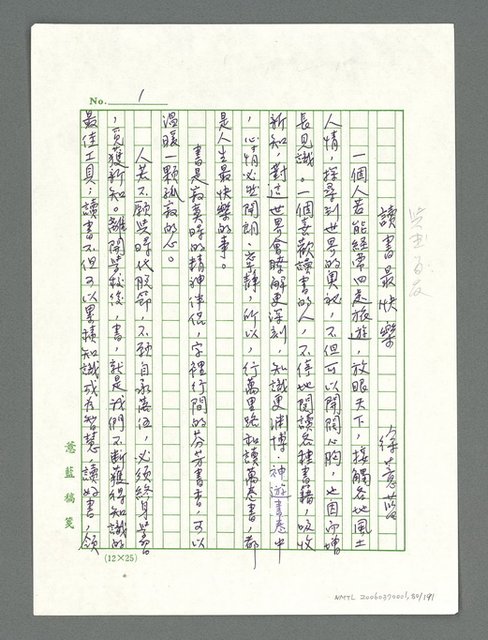 No. 1
讀書最快樂
徐薏藍
一個人若能經常四處旅遊，放眼天下，接觸各地風土
人情，探尋到世界的奧秘，不但可以開闊心胸，也因而增
長見識。一個喜歡讀書的人，不停地閱讀各種書籍，吸收
新知，對這世界會瞭解更深刻，知識更淵博，神遊書卷中
，心情必然開朗、寧靜，所以，行萬里路和讀萬卷書，都
是人生最快樂的事。
書是寂寞時的精神伴侶，字裡行間的芬芳書香，可以
溫暖一顆孤寂的心。
人若不願與時代脫節，不願自承落伍，必須終身學習
，覓獲新知。離開學校後，書，就是我們不斷獲得知識的
最佳工具；讀書不但可以累積知識成為智慧，讀好書，領
薏藍稿箋
(12×25)
NMTL 20060370001,80/191